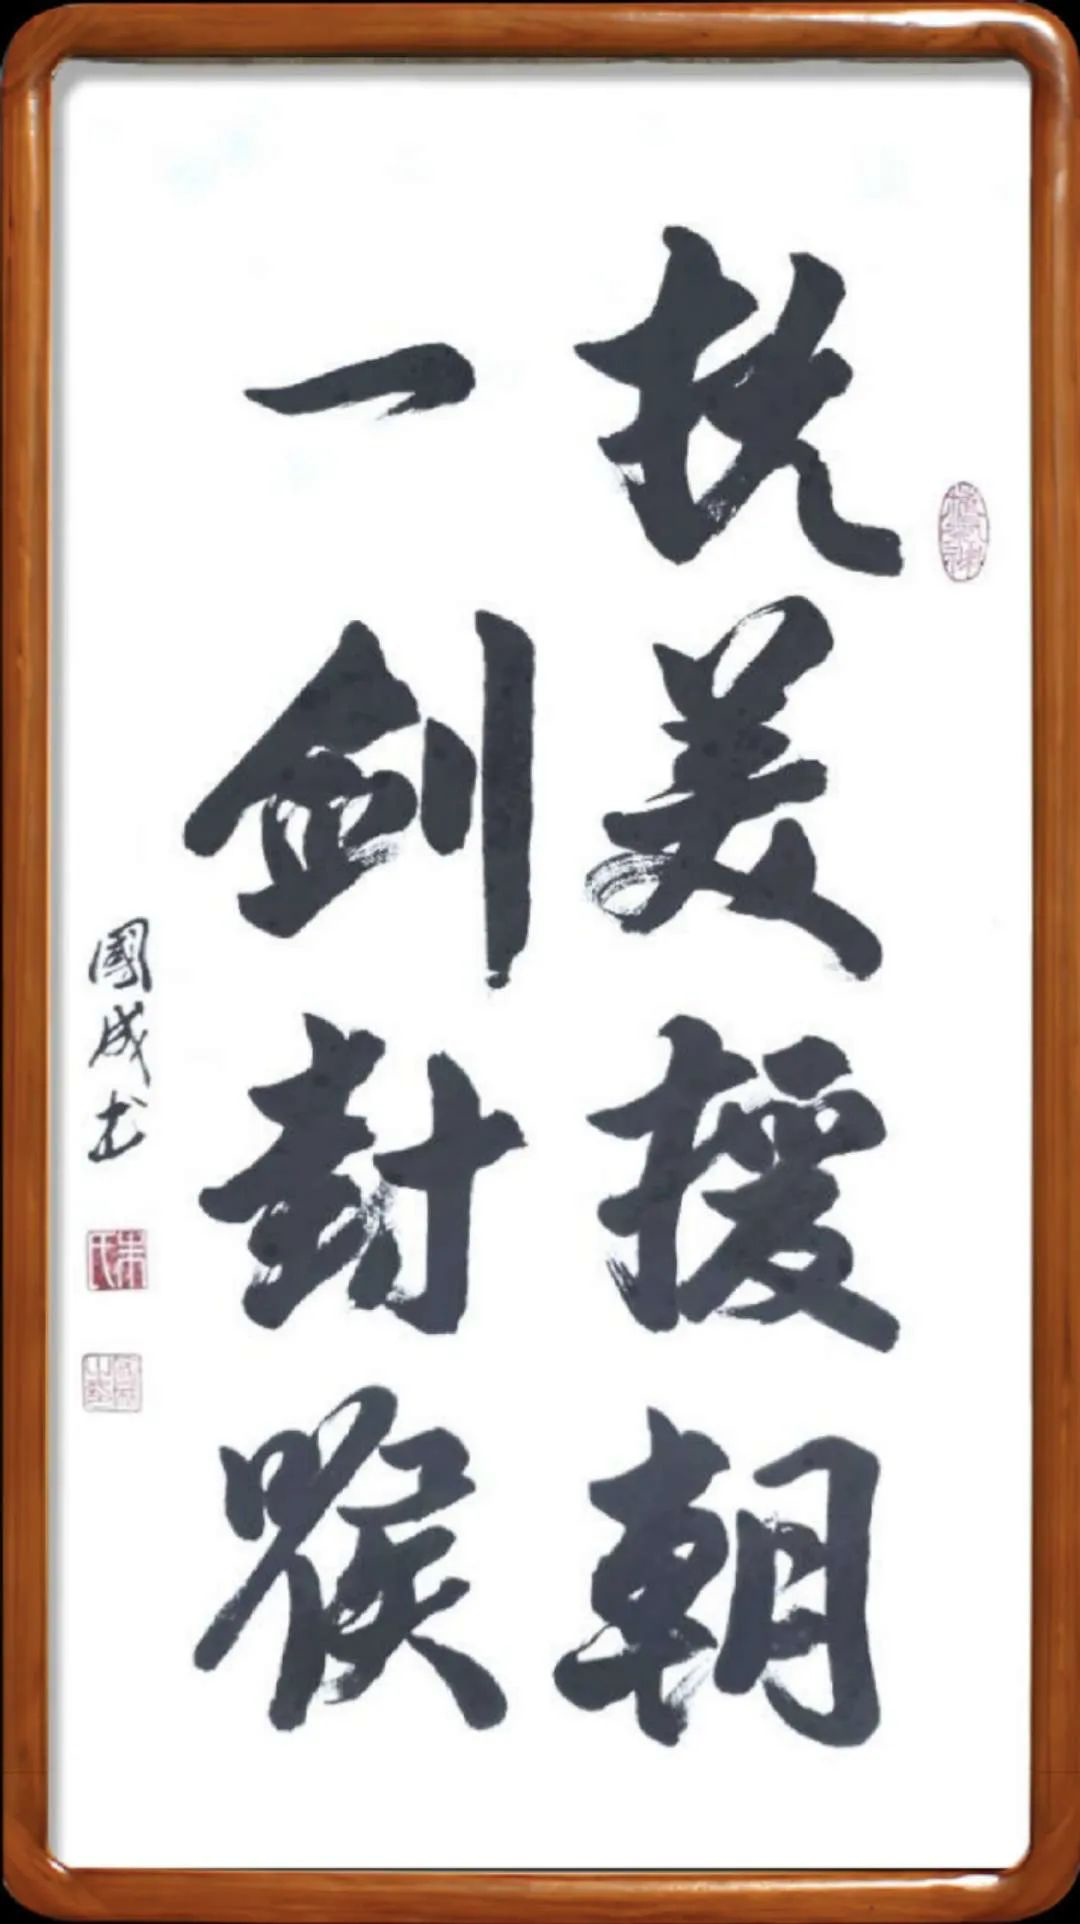 抗美援朝
一剑封喉
國成书